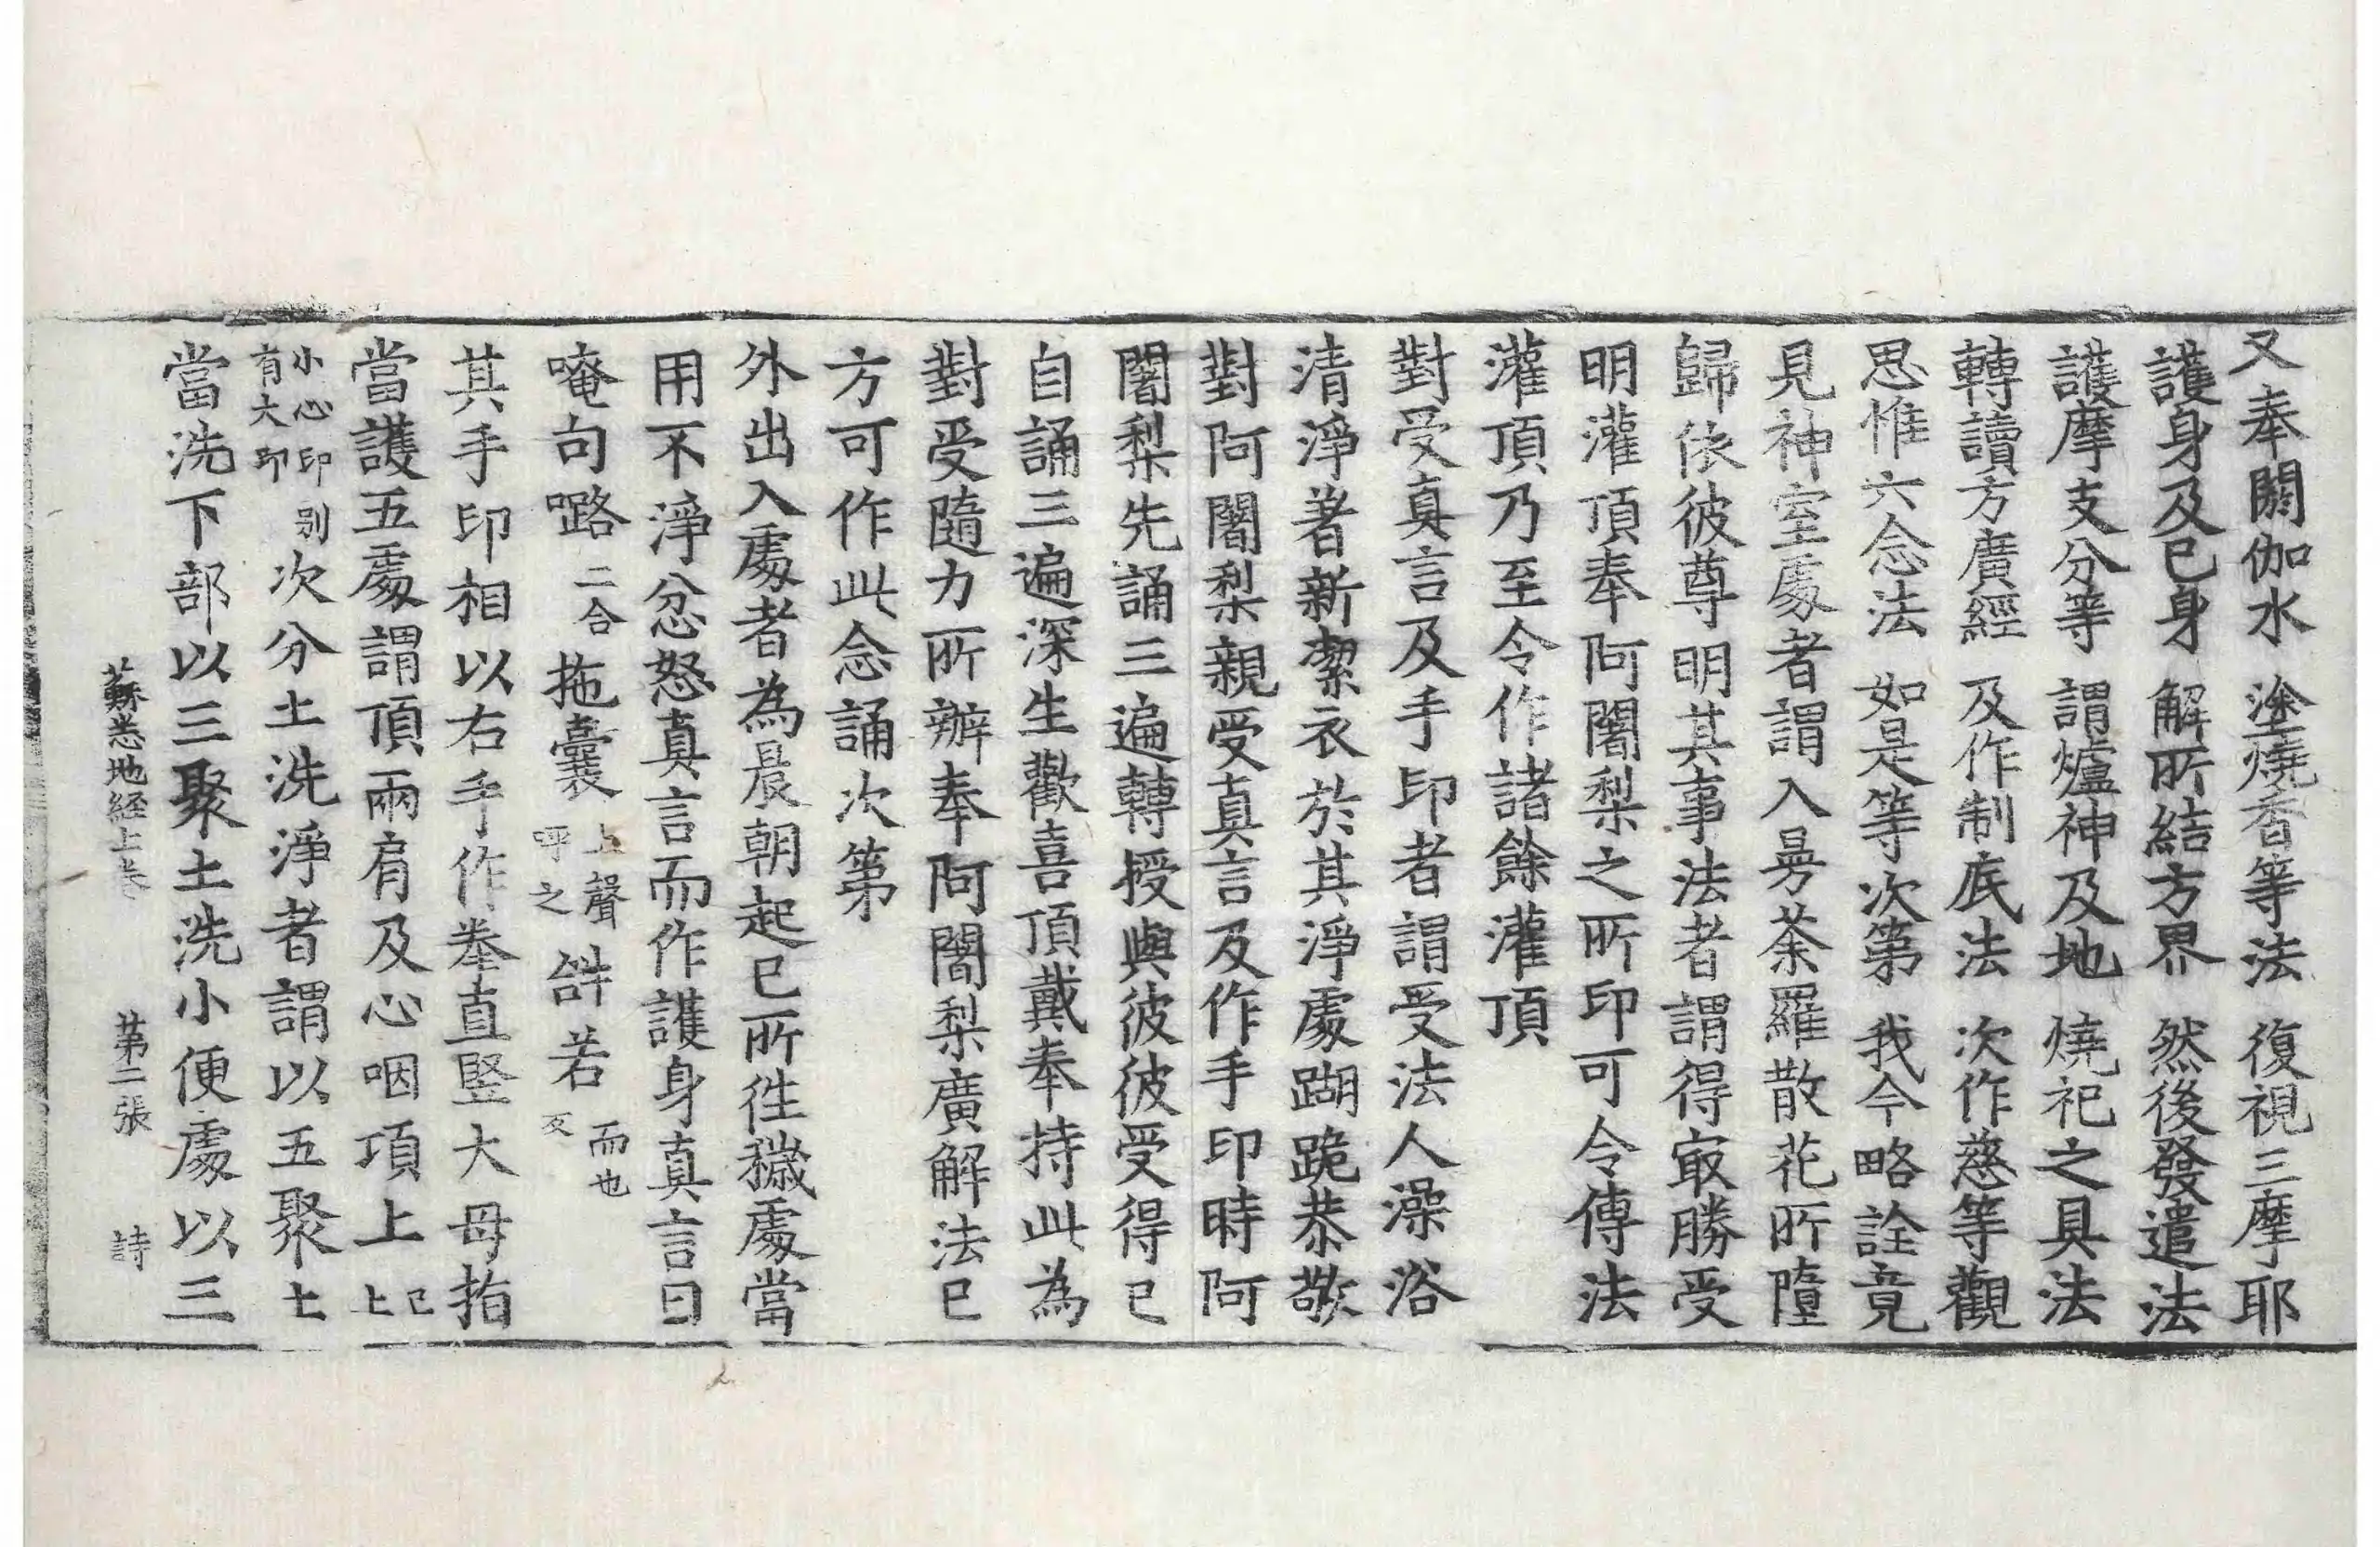 又奉閼伽水 塗燒香等法 復視三摩耶
護身及己身 解所結方界 然後發遣法
護摩支分等 謂爐神及地 燒祀之具法
轉讀方廣經 及作制底法 次作慈等觀
思惟六念法 如是等次第 我今略詮竟
見神室處者謂入曼荼羅散花所墮
歸依彼尊明其事法者謂得㝡勝受
明灌頂奉阿闍梨之所印可令傳法
灌頂乃至令作諸餘灌頂
對受真言及手印者謂受法人澡浴
清淨著新潔衣於其淨處䠒跪恭敬
對阿闍梨親受真言及作手印時阿
闍梨先誦三遍轉授與彼彼受得已
自誦三遍深生歡喜頂戴奉持此為
對受隨力所辦奉阿闍梨廣解法已
方可作此念誦次第
外出入處者為晨朝起已所徃穢處當
用不淨忿怒真言而作護身真言曰
唵句嚕二合拖囊上聲呼之𤙖若而也反
其手印相以右手作拳直竪大母指
當護五處謂頂兩肩及心咽項上已上
小心印別有大印次分土洗淨者謂以五聚土
當洗下部以三聚土洗小便處以三
蘇悉地經上卷 苐二張 詩